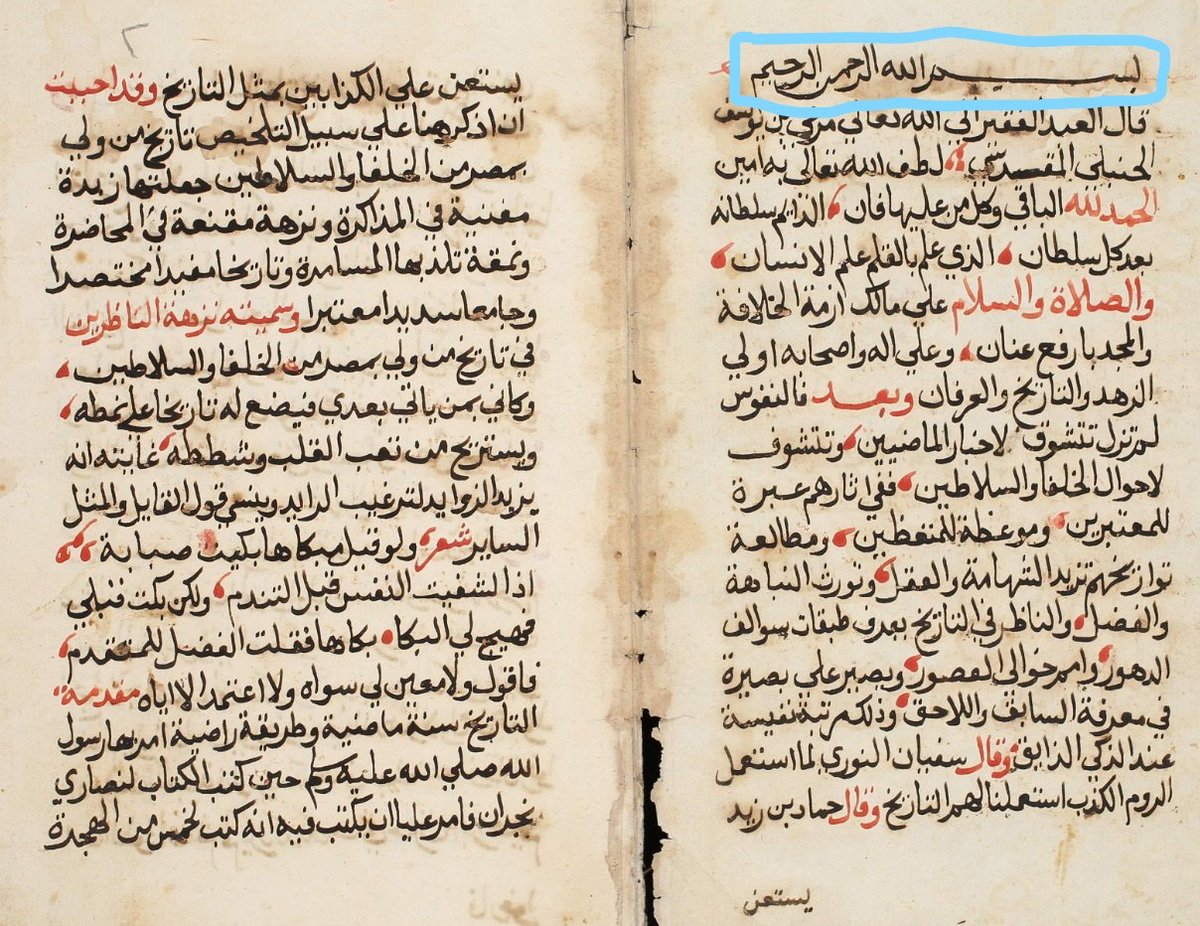 بسم الله الرحمن الرحيم
قال العبد الفقير الي الله تعالي مرعي بن يوسف
الحنبلي المقدسي لطف الله تعالي به امين
الحمد لله الباقي وكل من عليها فان الدايم سلطانه
بعد كل سلطان الذي علم بالقلم علم الانسان
والصلاة والسلام علي مالك ازمة الخلافة
والمجد بارفع عنان وعلي اله واصحابه اولي
الزهد والتاريخ والعرفان وبعد فالنفوس
لم تزل تتشوق لاخبار الماضيين وتتشوف
لاحوال الخلفا والسلاطين ففي اثارهم عبرة
للمعتبرين وموعظة للمتعظين ومطالعة
تواريخهم تزيد الشهامة والعقل وتورث النباهة
والفضل والناظر في التاريخ يعرف طبقات سوالف
الدهور وامم خوالي العصور ويصير علي بصيرة
في معرفة السابق واللاحق وذلك مرتبة نفيسة
عند الذكي الذايق وقال سفيان الثوري لما استعمل
الروم الكذب استعملنا لهم التاريخ وقال حماد بن زيد
يستعن
٢
يستعن علي الكذابين بمثل التاريخ وقد احببت
ان اذكر هنا علي سبيل التلخيص تاريخ من ولي
بمصر من الخلفا والسلاطين جعلتها زبدة
مغنية في المذاكرة ونزهة مقنعة في المحاضرة
تلذ بها المسامرة وتاريخا مفيدا مختصرا
وجامعا سديدا معتبرا وسميته نزهة الناظرين
في تاريخ من ولي بمصر من الخلفا والسلاطين
وكاني بمن ياتي بعدي فيضع له تاريخا علي نمطه
ويستريح من تعب القلب وشططه غايته انه
يزيد الزوايد لترغيب الرايد وينسي قول القايل والمثل
الساير شعر ولو قبل مبكاها بكيت صبابة
اذا لشفيت النفس قبل التندم ولكن بكت قبلي
فهيج لي البكا بكاها فقلت الفضل للمتقدم
فاقول ولا معين لي سواه ولا اعتمد الا اياه مقدمة
التاريخ سنة ماضية وطريقة راضية امر بها رسول
الله صلي الله عليه وسلم حين كتب الكتاب لنصاري
نجران فامر عليا ان يكتب فيه انه كتب لخمس من الهجرة